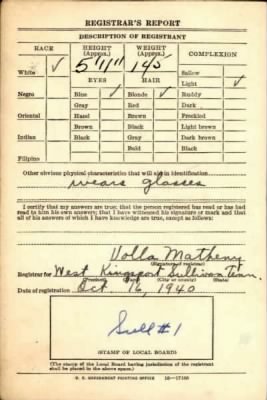 REGISTRAR'S REPORT
DESCRIPTION OF REGISTRANT
RACE HEIGHT (Approx.) WEIGHT (Approx.) COMPLEXION
✓ 5'11" 145
White Sallow
EYES HAIR Light ✓
Negro Blue ✓ Blonde ✓ Ruddy
Gray Red Dark
Oriental Hazel Brown Freckled
Brown Black Light brown
Indian Black Gray Dark brown
Bald Black
Filipino
Other obvious physical characteristic that will aid in identification
wears glasses
I certify that my answers are true; that the person registered has read or has had
read to him his own answers; that I have witnessed his signature or mark and that
all of his answers of which I have knowledge are true, except as follows:
Volla Matheny
(Signature of registrar)
Registrar for West Kingsport Sullivan Tenn.
(Precinct) (City or county) (State)
Date of registration Oct. 16, 1940
Sull #1
(STAMP OF LOCAL BOARD)
(The stamp of the Local Board having jurisdiction of the registrant
shall be placed in the above space.)
U. S. GOVERNMENT PRINTING OFFICE 16—17105